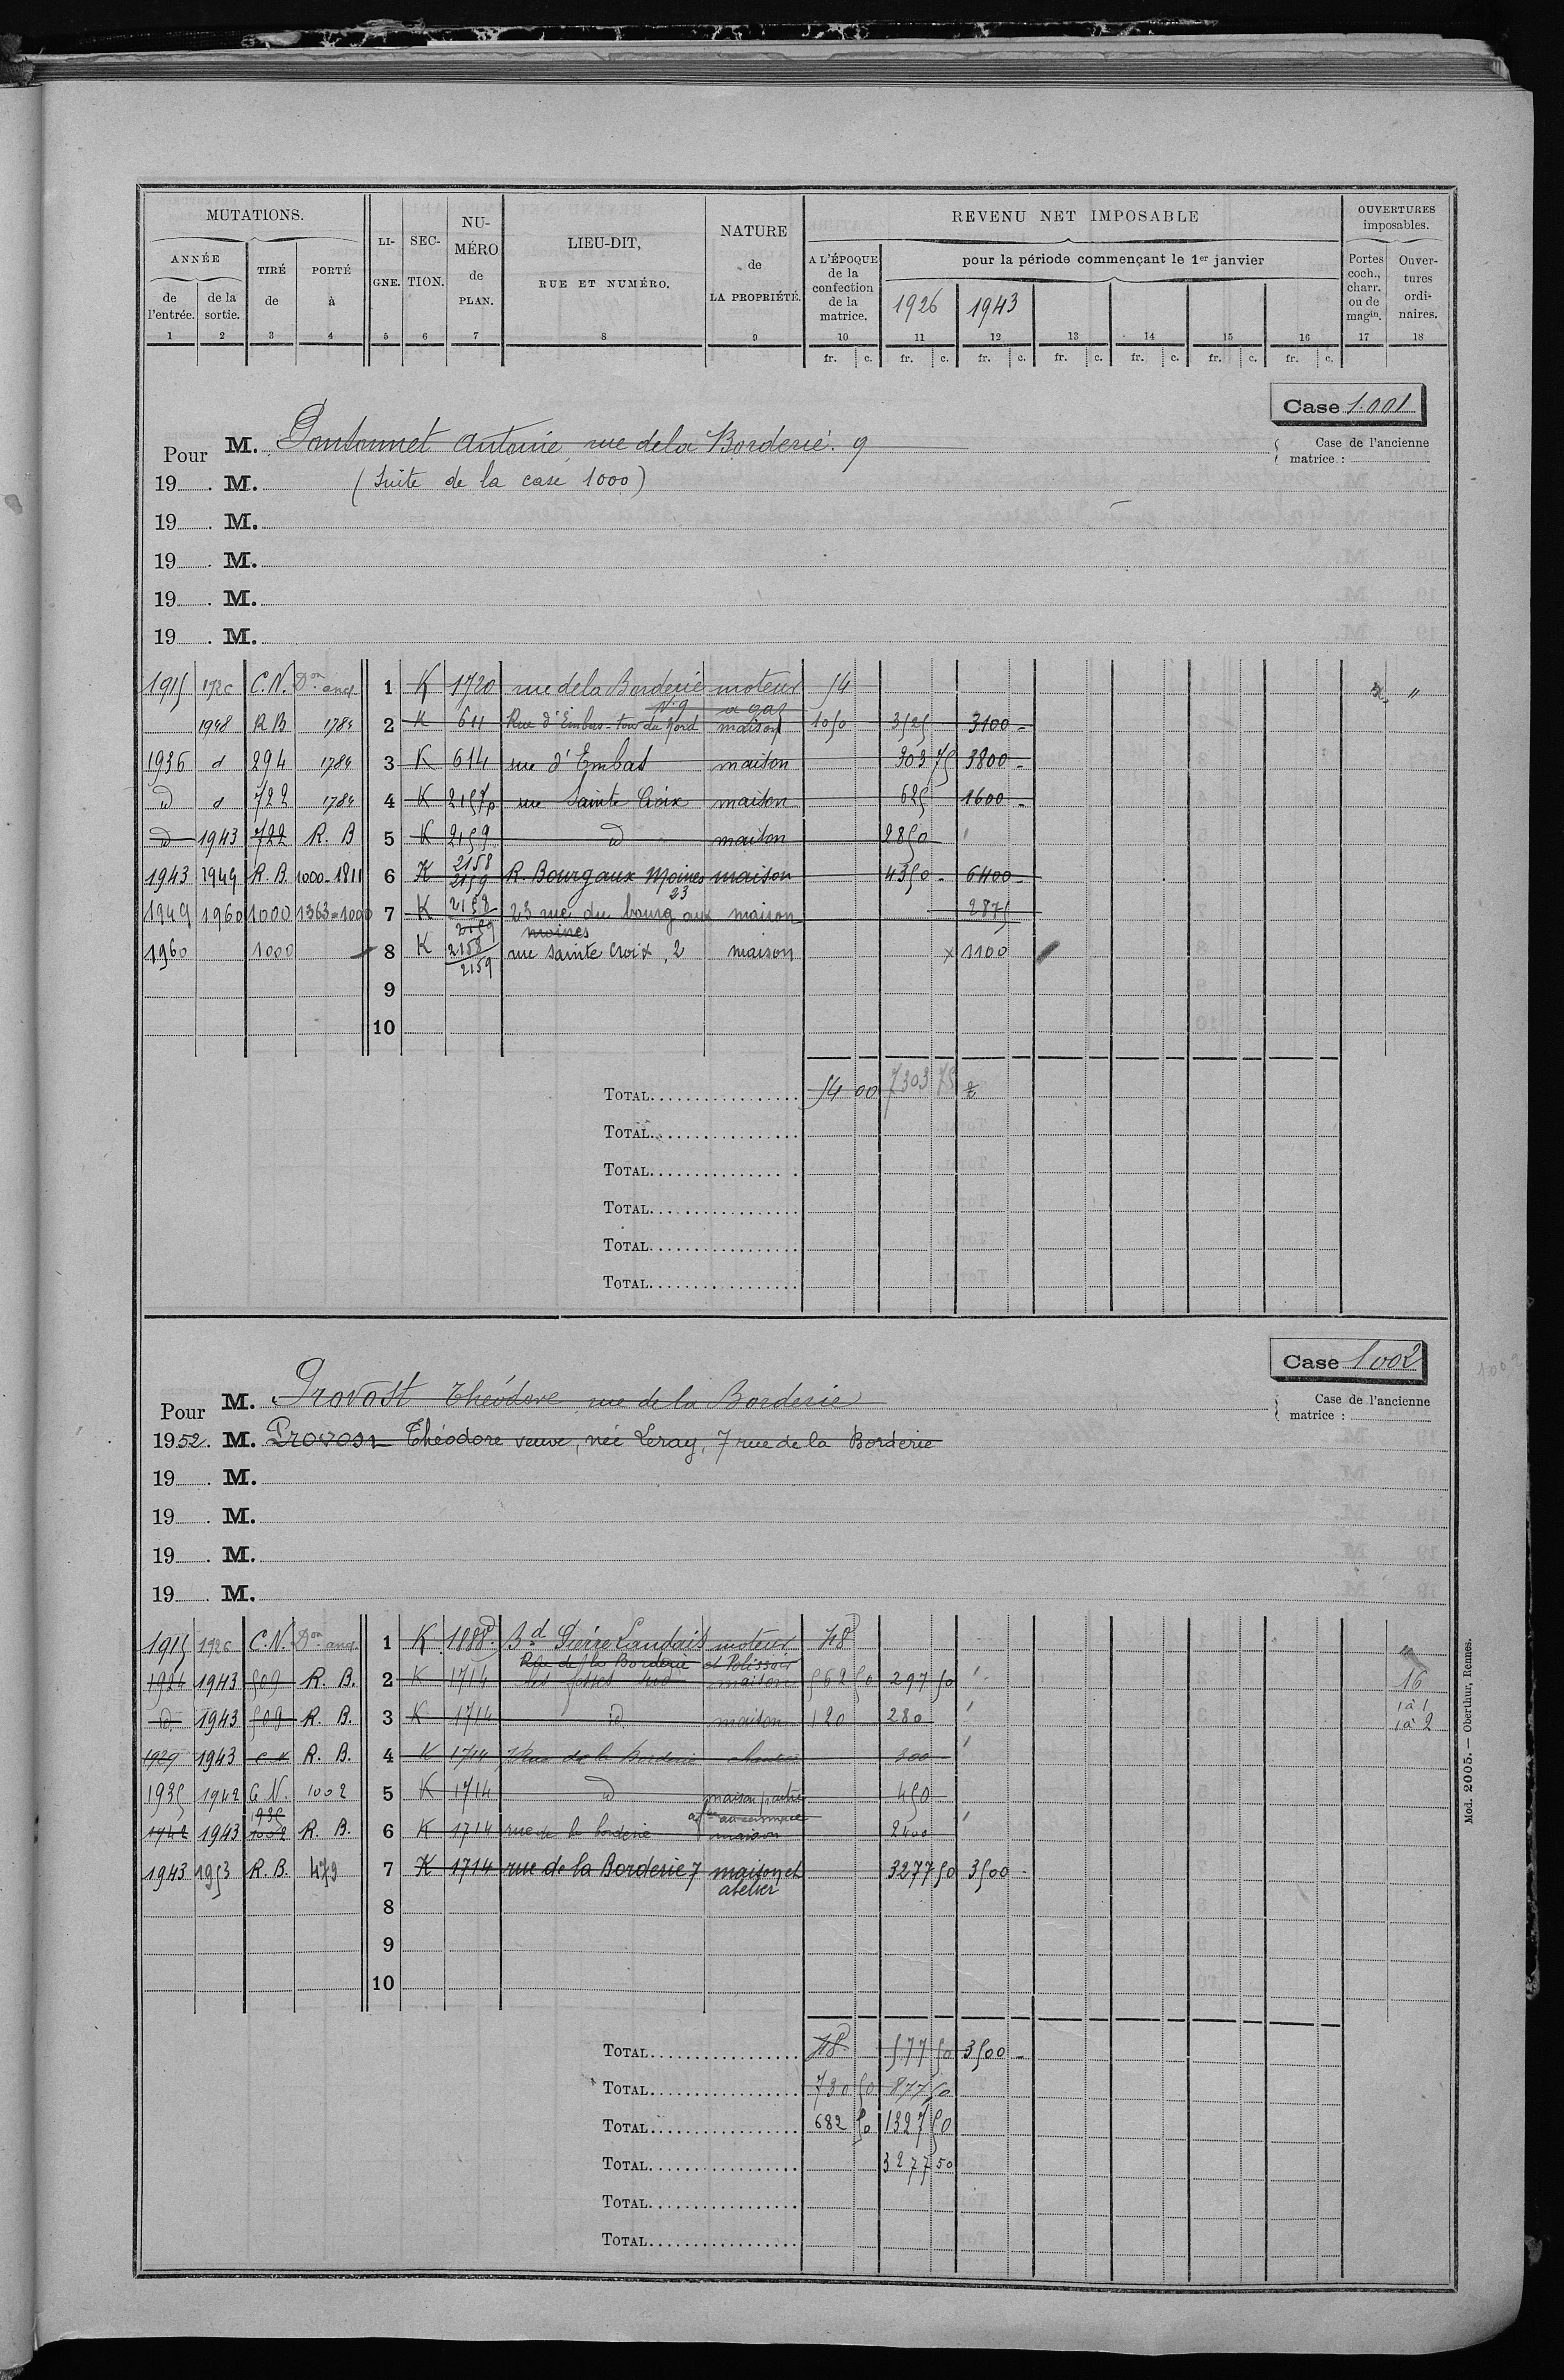 MUTATIONS.
ANNÉE
de l'entrée.
de la sortie.
TIRÉ de
PORTÉ à
LI-GNE.
SEC-TION.
NU-MÉRO de PLAN.
LIEU-DIT, RUE ET NUMÉRO.
NATURE de LA PROPRIÉTÉ.
REVENU NET IMPOSABLE
A L'ÉPOQUE de la confection de la matrice.
pour la période commençant le 1er janvier
1926 1943
OUVERTURES imposables.
Portes coch., charr. ou de magin.
Ouver-tures ordi-naires.
1 2 3 4 5 6 7 8 9 10 11 12 13 14 15 16 17 18
fr. c. fr. c. fr. c. fr. c. fr. c. fr. c. fr. c.
Case 1.001
Pour M. Antoine, rue de la Borderie. 9
Case de l'ancienne matrice :
19 . M. (Suite de la case 1000)
19 . M.
19 . M.
19 . M.
19 . M.
1915 1926 C.N. Don anc. 1 K 1720 rue de la Borderie N° 9 moteur a gaz 54 "
1948 R B 1784 2 K 611 Rue d'Embas-tour du Nord maison 1050 3525 3100 -
1936 d 294 1784 3 K 614 rue d'Embas maison 303 75 3800 -
d d 722 1784 4 K 2157p rue Sainte Croix maison 625 1600 -
d 1943 722 R. B 5 K 2159 d maison 2850
1943 1949 R. B. 1000-1811 6 K 2158 2159 R. Bourg aux Moines 23 maison 4350 - 6400 -
1949 1960 1000 1363=1000 7 K 2158 2159 23 rue du bourg aux moines maison 2875
1960 1000 8 K 2158 2159 rue Sainte Croix, 2 maison x 1100
9
10
TOTAL 54 00 7303 75
TOTAL
TOTAL
TOTAL
TOTAL
TOTAL
Case 1002
Pour M. Provost Théodore rue de la Borderie
Case de l'ancienne matrice :
1952. M. Provost Théodore veuve, née Leray, 7 rue de la Borderie
19 . M.
19 . M.
19 . M.
19 . M.
1915 1926 C.N. Don anc. 1 K 1888p. Bd Pierre Landais moteur et Polissoir 48
1924 1943 509 R. B. 2 K 1714 Rue de la Borderie maison 562 50 297 50 16
d 1943 509 R. B. 3 K 1714 d maison 120 280 1 à 1 1 à 2
1929 1943 C N R. B. 4 K 1714 7 Rue de la Borderie 300
1935 1942 C. N. 1002 5 K 1714 d maison 450
1942 1943 1935 1002 R. B. 6 K 1714 rue de la borderie maison 2400
1943 1953 R. B. 479 7 K 1714 rue de la Borderie 7 maison et atelier 3277 50 3500 -
8
9
10
TOTAL 48 577 50 3500 -
TOTAL 730 50 877 50
TOTAL 682 50 1327 50
TOTAL 3277 50
TOTAL
TOTAL
Mod. 2005. — Oberthur, Rennes.
1002